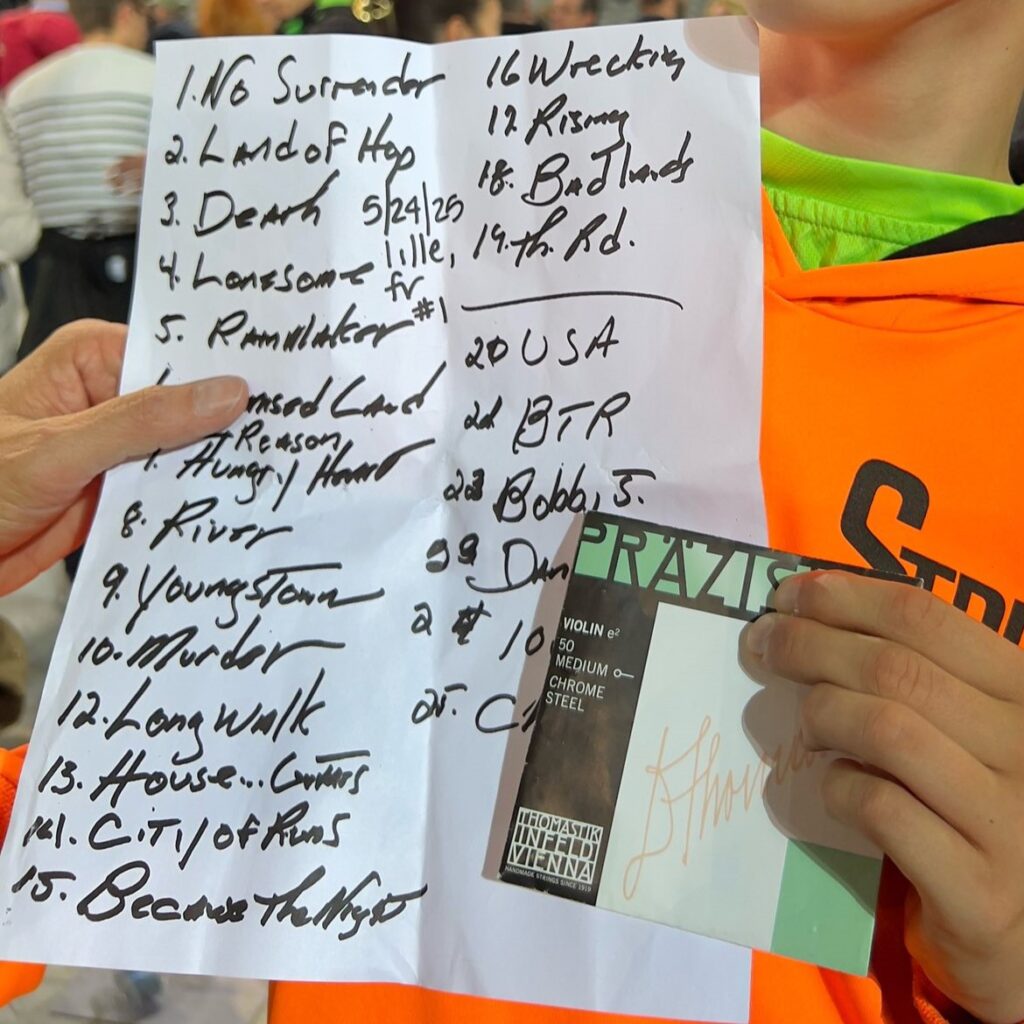 1. No Surrender
2. Land of Hop
3. Death
5/24/25
lille,
fr
#1
4. Lonesome
5. Rainmaker
mised Land
Reason
Hungry Heart
8. River
9. Youngstown
10. Murder
12. Long Walk
13. House... Guitars
14. City of Ruins
15. Because The Night
16 Wrecking
17. Rising
18. Badlands
19. Th. Rd.
20 USA
BTR
Bobby J.
Dan
10
25. C
PRÄZIS
VIOLIN e²
50
MEDIUM
CHROME
STEEL
THOMASTIK
INFELD
VIENNA
HANDMADE STRINGS SINCE 1919